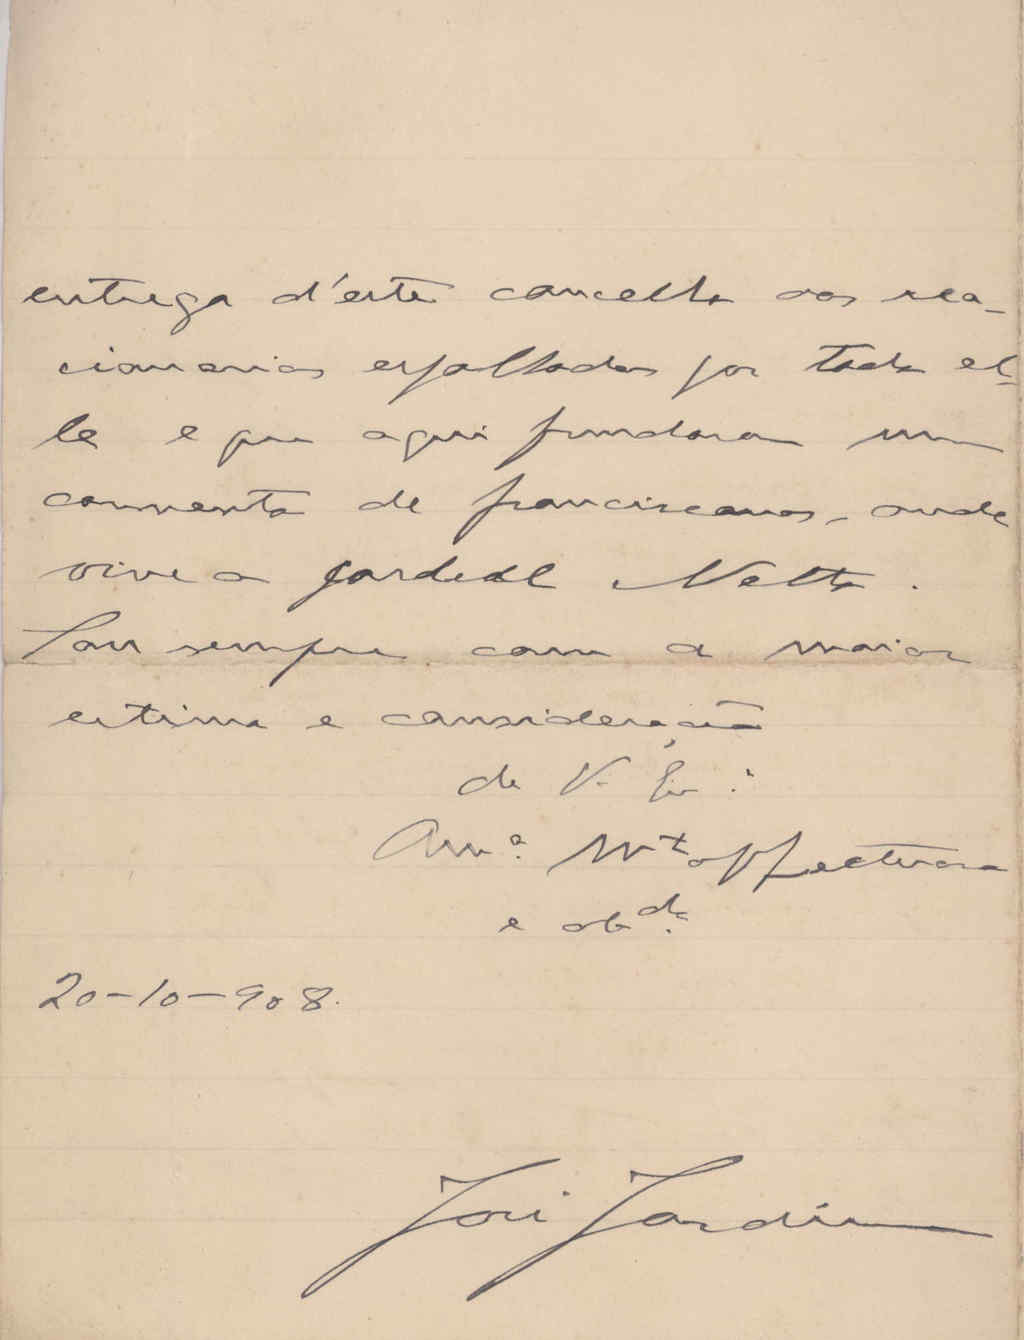 entrega d'este concelho aos rea-
cionarios espalhados por todo el-
le e que aqui fundaram um
convento de franciscanos, onde
vive o jardeal Netto.
Sou sempre com a maior
estima e consideração
de V. Ex.ª
Am.º Mt.º affectuoso
e obd.º
20-10-908.
José Jardim